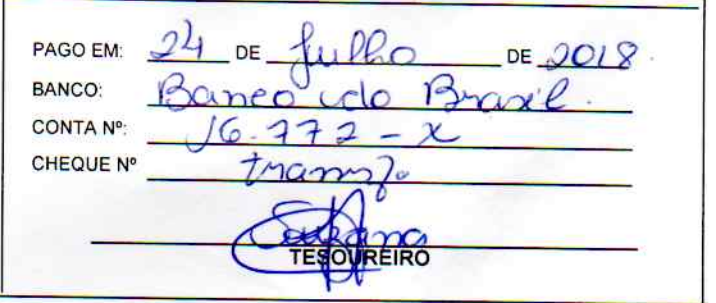 PAGO EM: 24 DE Julho DE 2018.
BANCO: Banco do Brasil.
CONTA Nº: 16.772-X
CHEQUE Nº transf.
TESOUREIRO